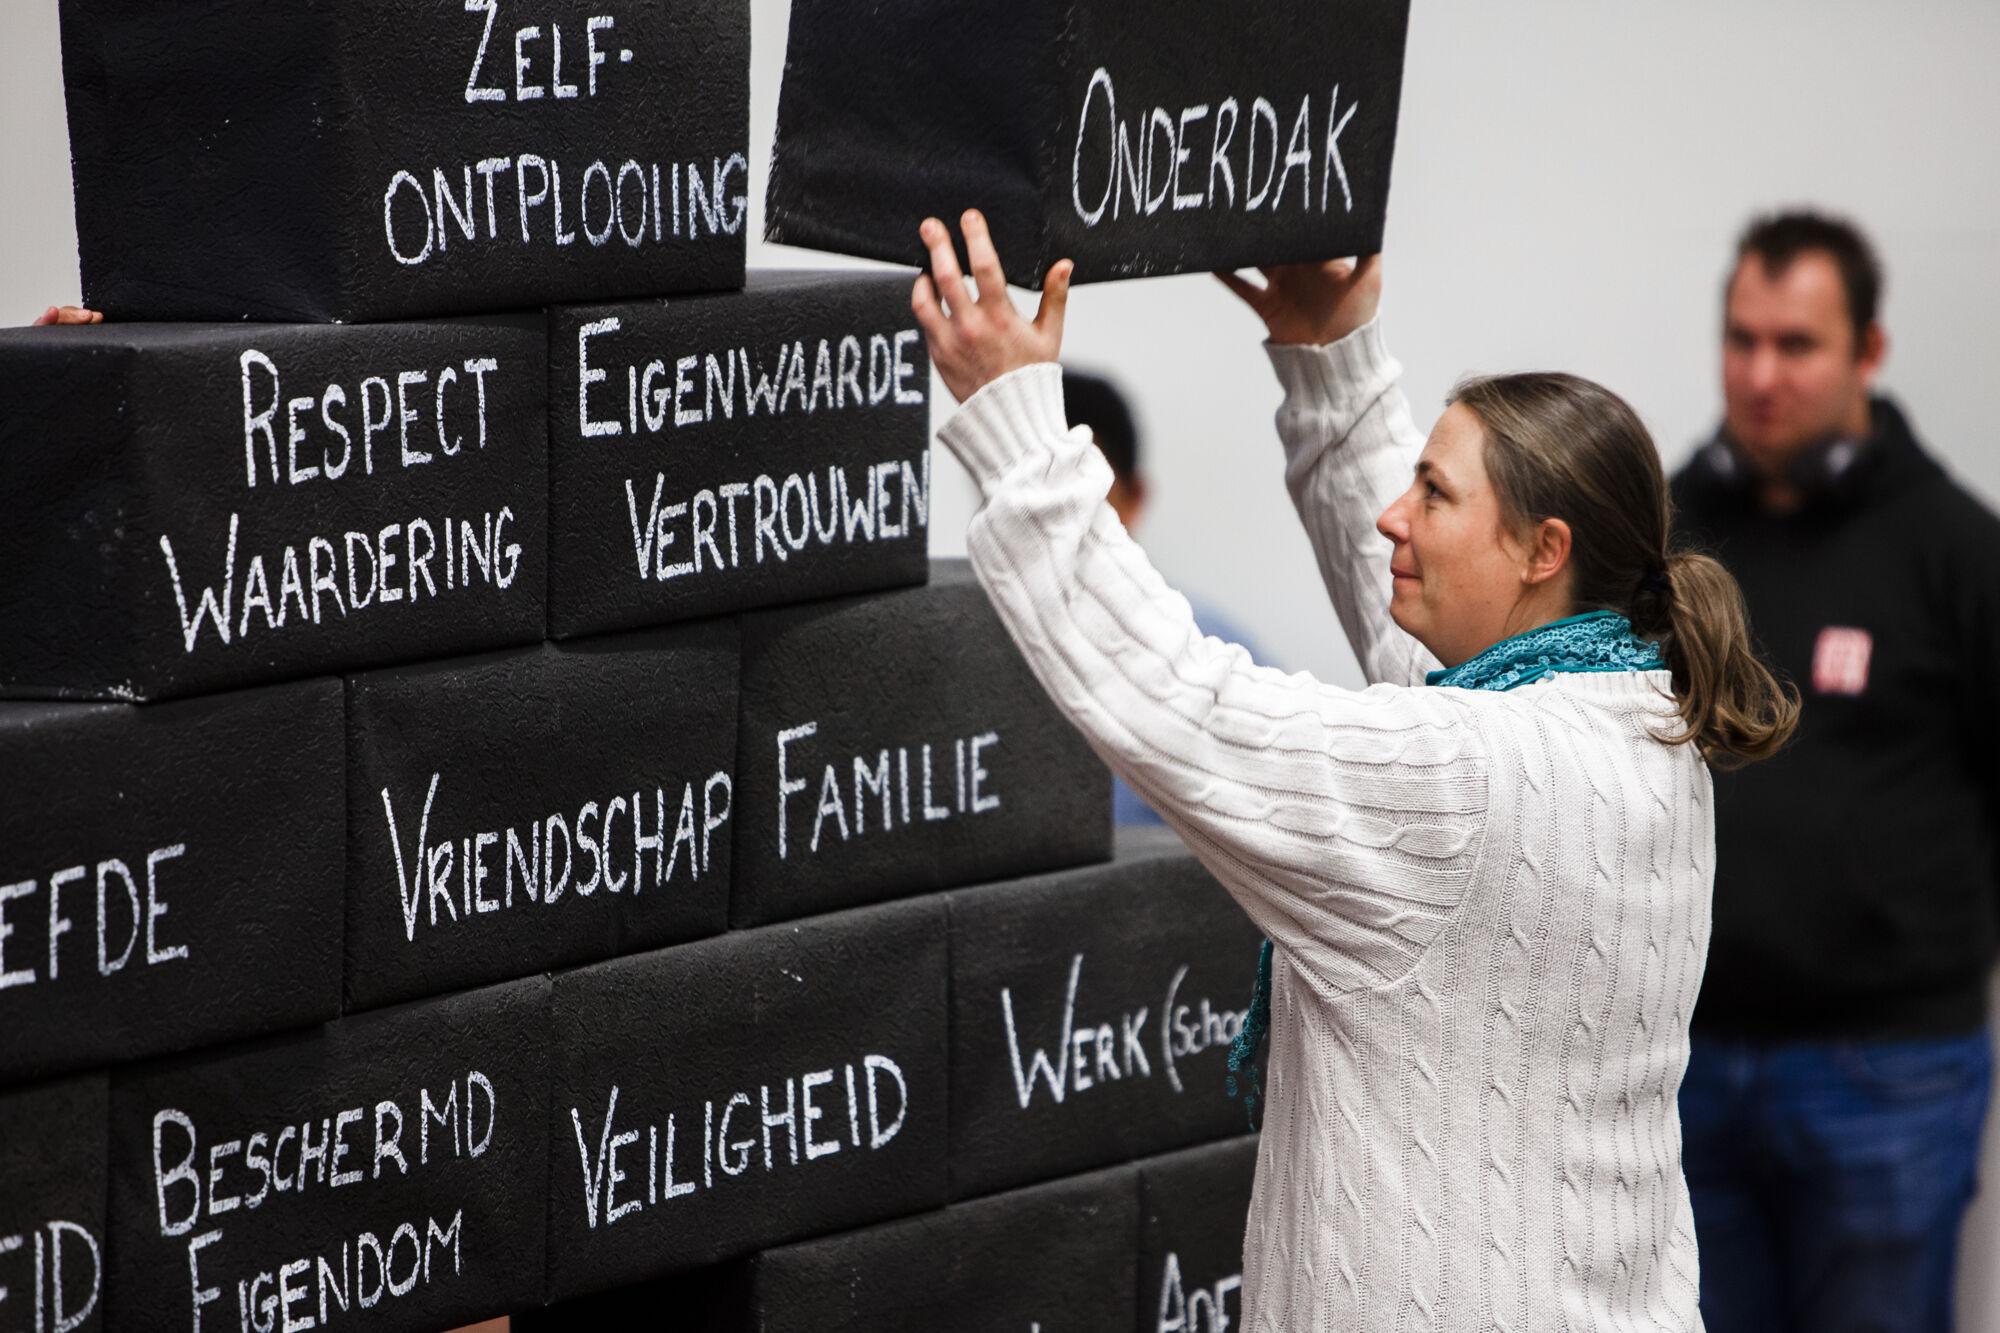 ZELF-
ONTPLOOIING
ONDERDAK
RESPECT
WAARDERING
EIGENWAARDE
VERTROUWEN
VRIENDSCHAP
FAMILIE
BESCHERMD
EIGENDOM
VEILIGHEID
WERK